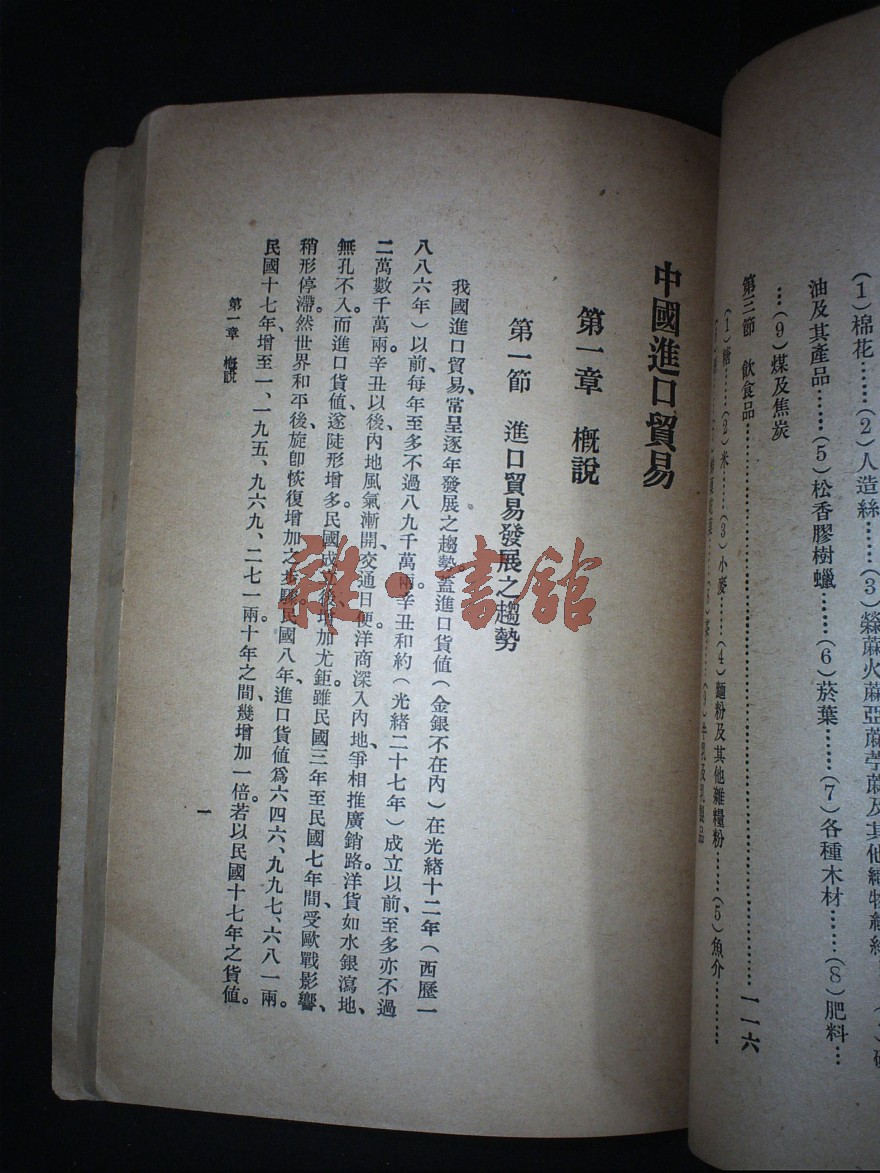 (1)棉花……(2)人造絲……(3)
油及其產品……(5)松香膠樹蠟……(6)菸葉……(7)各種木材……(8)肥料…
…(9)煤及焦炭
第三節 飲食品…………一一六
(1)糖……(2)米……(3)小麥……(4)麵粉及其他雜糧粉……(5)魚介…………
中國進口貿易
第一章 概說
第一節 進口貿易發展之趨勢
我國進口貿易、常呈逐年發展之趨勢蓋進口貨值(金銀不在內)在光緒十二年(西歷一
八八六年)以前、每年至多不過八九千萬兩。辛丑和約(光緒二十七年)成立以前、至多亦不過
二萬數千萬兩辛丑以後、內地風氣漸開、交通日便。洋商深入內地、爭相推廣銷路、洋貨如水銀瀉地、
無孔不入。而進口貨值、遂陡形增多。民國成立後、增加尤鉅雖民國三年至民國七年間受歐戰影響、
稍形停滯、然世界和平後、旋卽恢復增加之步驟民國八年、進口貨値爲六四六、九九七、六八一兩。
民國十七年、增至一、一九五、九六九、二七一兩、十年之間、幾增加一倍。若以民國十七年之貨值。
第一章 概說
一
雜·書館